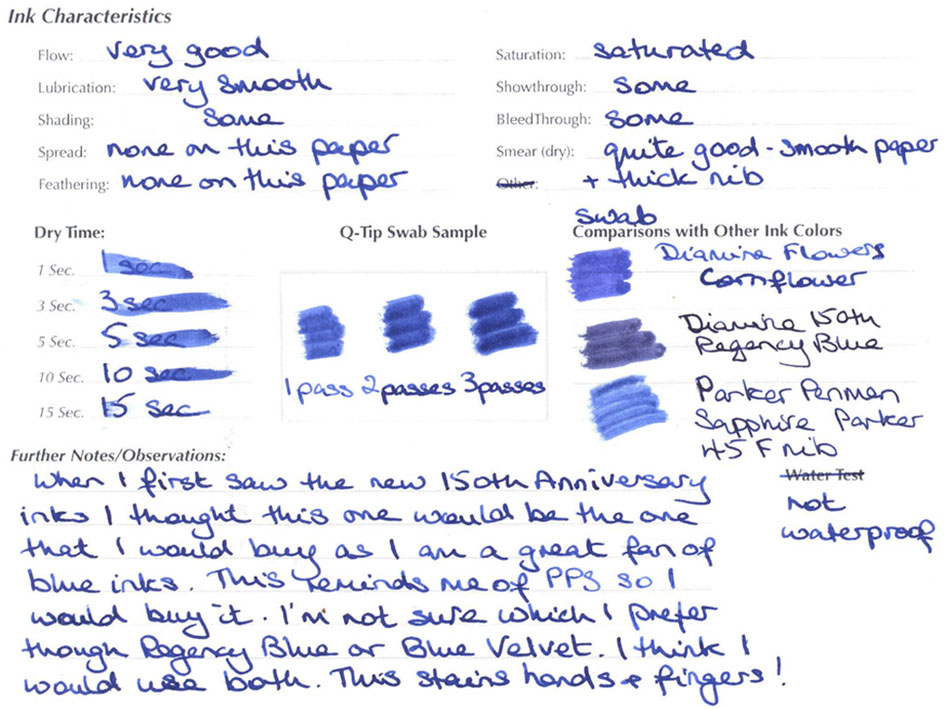 Ink Characteristics
Flow: very good
Lubrication: very smooth
Shading: some
Spread: none on this paper
Feathering: none on this paper
Saturation: saturated
Showthrough: some
BleedThrough: some
Smear (dry): quite good - smooth paper
Other: + thick nib
Dry Time:
1 Sec. 1 sec
3 Sec. 3 sec
5 Sec. 5 sec
10 Sec. 10 sec
15 Sec. 15 sec
Q-Tip Swab Sample
1 pass 2 passes 3 passes
swab
Comparisons with Other Ink Colors
Diamine Flowers
Cornflower
Diamine 150th
Regency Blue
Parker Penman
Sapphire Parker
45 F nib
Further Notes/Observations:
When I first saw the new 150th Anniversary
inks I thought this one would be the one
that I would buy as I am a great fan of
blue inks. This reminds me of PPS so I
would buy it. I'm not sure which I prefer
though Regency Blue or Blue Velvet. I think I
would use both. This stains hands + fingers!
Water Test
not
waterproof